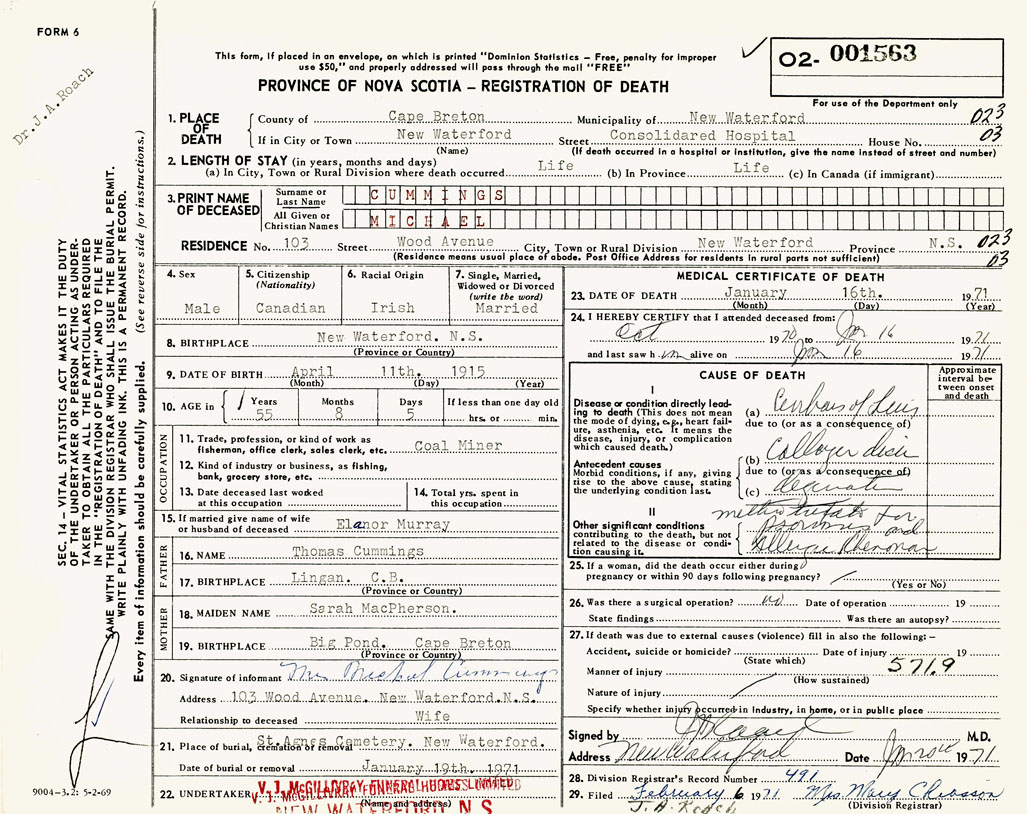 FORM 6
Dr. J.A. Roach
This form, if placed in an envelope, on which is printed "Dominion Statistics – Free, penalty for improper
use $50," and properly addressed will pass through the mail "FREE"
02- 001563
For use of the Department only
PROVINCE OF NOVA SCOTIA – REGISTRATION OF DEATH
1. PLACE OF DEATH County of Cape Breton Municipality of New Waterford 023
If in City or Town New Waterford Street Consolidared Hospital House No. 03
(Name) (If death occurred in a hospital or institution, give the name instead of street and number)
2. LENGTH OF STAY (in years, months and days)
(a) In City, Town or Rural Division where death occurred Life (b) In Province Life (c) In Canada (if immigrant)
3. PRINT NAME OF DECEASED Surname or Last Name CUMMINGS
All Given or Christian Names MICHAEL
RESIDENCE No. 103 Street Wood Avenue City, Town or Rural Division New Waterford Province N.S. 023
(Residence means usual place of abode. Post Office Address for residents in rural parts not sufficient) 03
4. Sex
Male
5. Citizenship
(Nationality)
Canadian
6. Racial Origin
Irish
7. Single, Married,
Widowed or Divorced
(write the word)
Married
8. BIRTHPLACE New Waterford. N.S.
(Province or Country)
9. DATE OF BIRTH April 11th. 1915
(Month) (Day) (Year)
10. AGE in Years Months Days If less than one day old
55 8 5 hrs. or min.
OCCUPATION
11. Trade, profession, or kind of work as
fisherman, office clerk, sales clerk, etc. Coal Miner
12. Kind of industry or business, as fishing,
bank, grocery store, etc.
13. Date deceased last worked
at this occupation
14. Total yrs. spent in
this occupation
15. If married give name of wife
or husband of deceased Elanor Murray
FATHER
16. NAME Thomas Cummings
17. BIRTHPLACE Lingan. C.B.
(Province or Country)
MOTHER
18. MAIDEN NAME Sarah MacPherson.
19. BIRTHPLACE Big Pond. Cape Breton
(Province or Country)
20. Signature of informant Mrs Michael Cummings
Address 103 Wood Avenue. New Waterford.N.S.
Relationship to deceased Wife
21. Place of burial, cremation or removal St.Agnes Cemetery. New Waterford.
Date of burial or removal January 19th. 1971
22. UNDERTAKER V. J. McGILLIVRAY FUNERAL HOMES LIMITED
(Name and address)
NEW WATERFORD N.S.
MEDICAL CERTIFICATE OF DEATH
23. DATE OF DEATH January 16th. 1971
(Month) (Day) (Year)
24. I HEREBY CERTIFY that I attended deceased from:
Oct 1970 to Jan 16 1971
and last saw h im alive on Jan 16 1971
CAUSE OF DEATH
Approximate
interval be-
tween onset
and death
I
Disease or condition directly lead-
ing to death (This does not mean
the mode of dying, e.g., heart fail-
ure, asthenia, etc. It means the
disease, injury, or complication
which caused death.)
(a)
due to (or as a consequence of)
Antecedent causes
Morbid conditions, if any, giving
rise to the above cause, stating
the underlying condition last.
(b)
due to (or as a consequence of)
(c)
II
Other significant conditions
contributing to the death, but not
related to the disease or condi-
tion causing it.
for
and
25. If a woman, did the death occur either during
pregnancy or within 90 days following pregnancy?
(Yes or No)
26. Was there a surgical operation? no Date of operation 19
State findings Was there an autopsy?
27. If death was due to external causes (violence) fill in also the following: –
Accident, suicide or homicide? Date of injury 19
(State which) 571.9
Manner of injury
(How sustained)
Nature of injury
Specify whether injury occurred in industry, in home, or in public place
Signed by M.D.
Address New Waterford Date 1971
28. Division Registrar's Record Number 491
29. Filed February 6 1971 Mrs. Mary Chiasson
(Division Registrar)
J. A. Roach
SEC. 14 – VITAL STATISTICS ACT MAKES IT THE DUTY
OF THE UNDERTAKER OR PERSON ACTING AS UNDER-
TAKER TO OBTAIN ALL THE PARTICULARS REQUIRED
IN THE "REGISTRATION OF DEATH" AND TO FILE THE
SAME WITH THE DIVISION REGISTRAR WHO SHALL ISSUE THE BURIAL PERMIT.
WRITE PLAINLY WITH UNFADING INK. THIS IS A PERMANENT RECORD.
Every item of information should be carefully supplied. (See reverse side for instructions.)
9004-3.2: 5-2-69